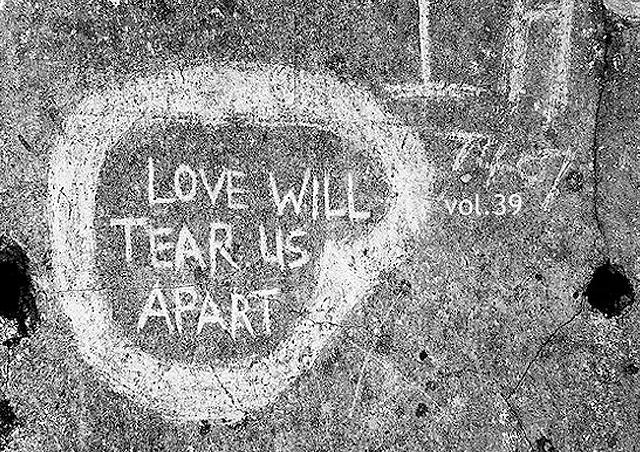 LOVE WILL
TEAR US
APART
vol.39